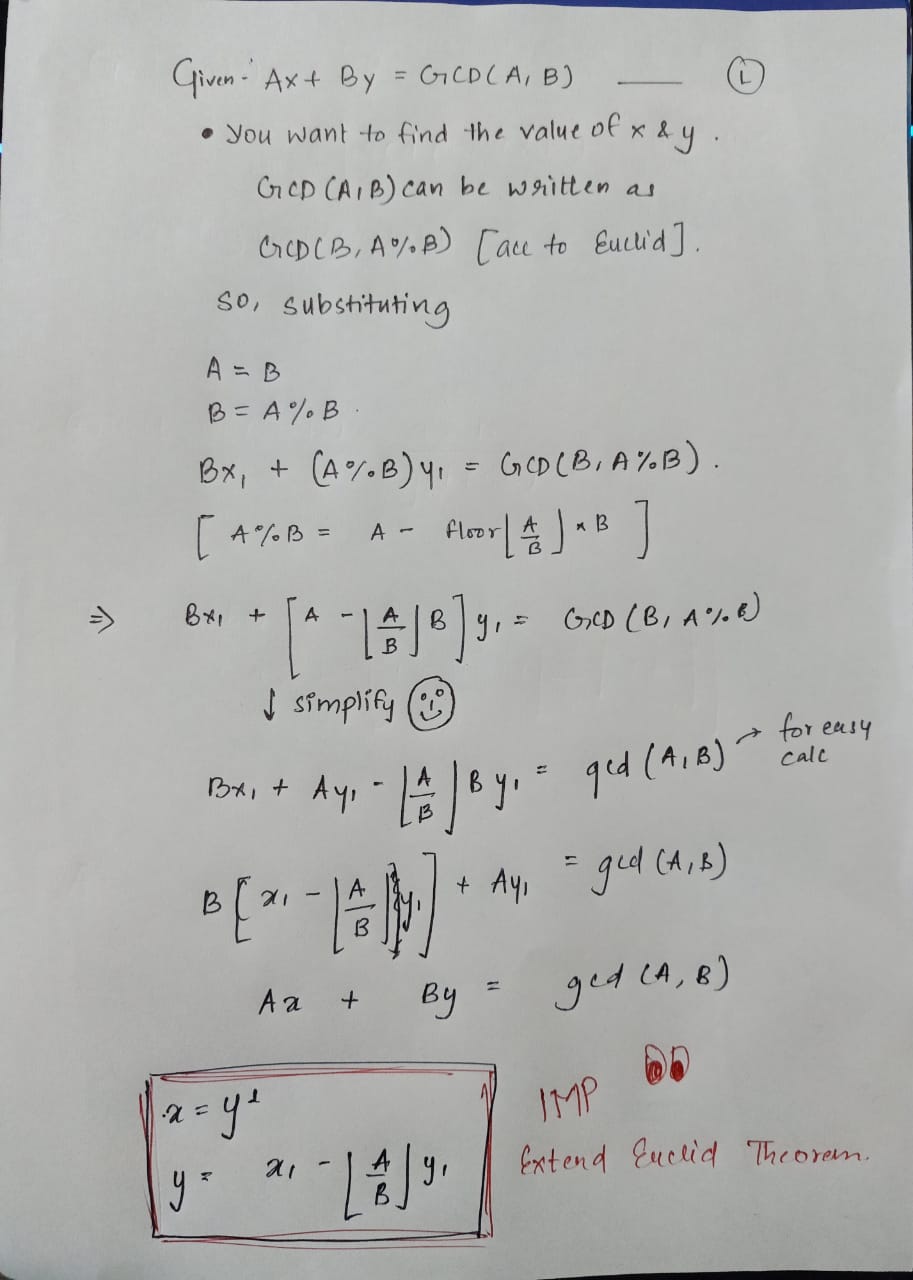 Given - Ax + By = GCD(A, B) —— (i)
• You want to find the value of x & y .
GCD (A, B) can be written as
GCD(B, A%B) [acc to Euclid].
so, substituting
A = B
B = A%B .
Bx₁ + (A%B)y₁ = GCD(B, A%B) .
[ A%B = A - floor⌊A/B⌋ × B ]
⇒ Bx₁ + [A - ⌊A/B⌋B]y₁ = GCD (B, A%B)
↓ simplify
Bx₁ + Ay₁ - ⌊A/B⌋By₁ = gcd (A, B) → for easy calc
B[x₁ - ⌊A/B⌋y₁] + Ay₁ = gcd (A, B)
Ax + By = gcd (A, B)
x = y¹
y = x₁ - ⌊A/B⌋y₁
IMP
Extend Euclid Theorem.